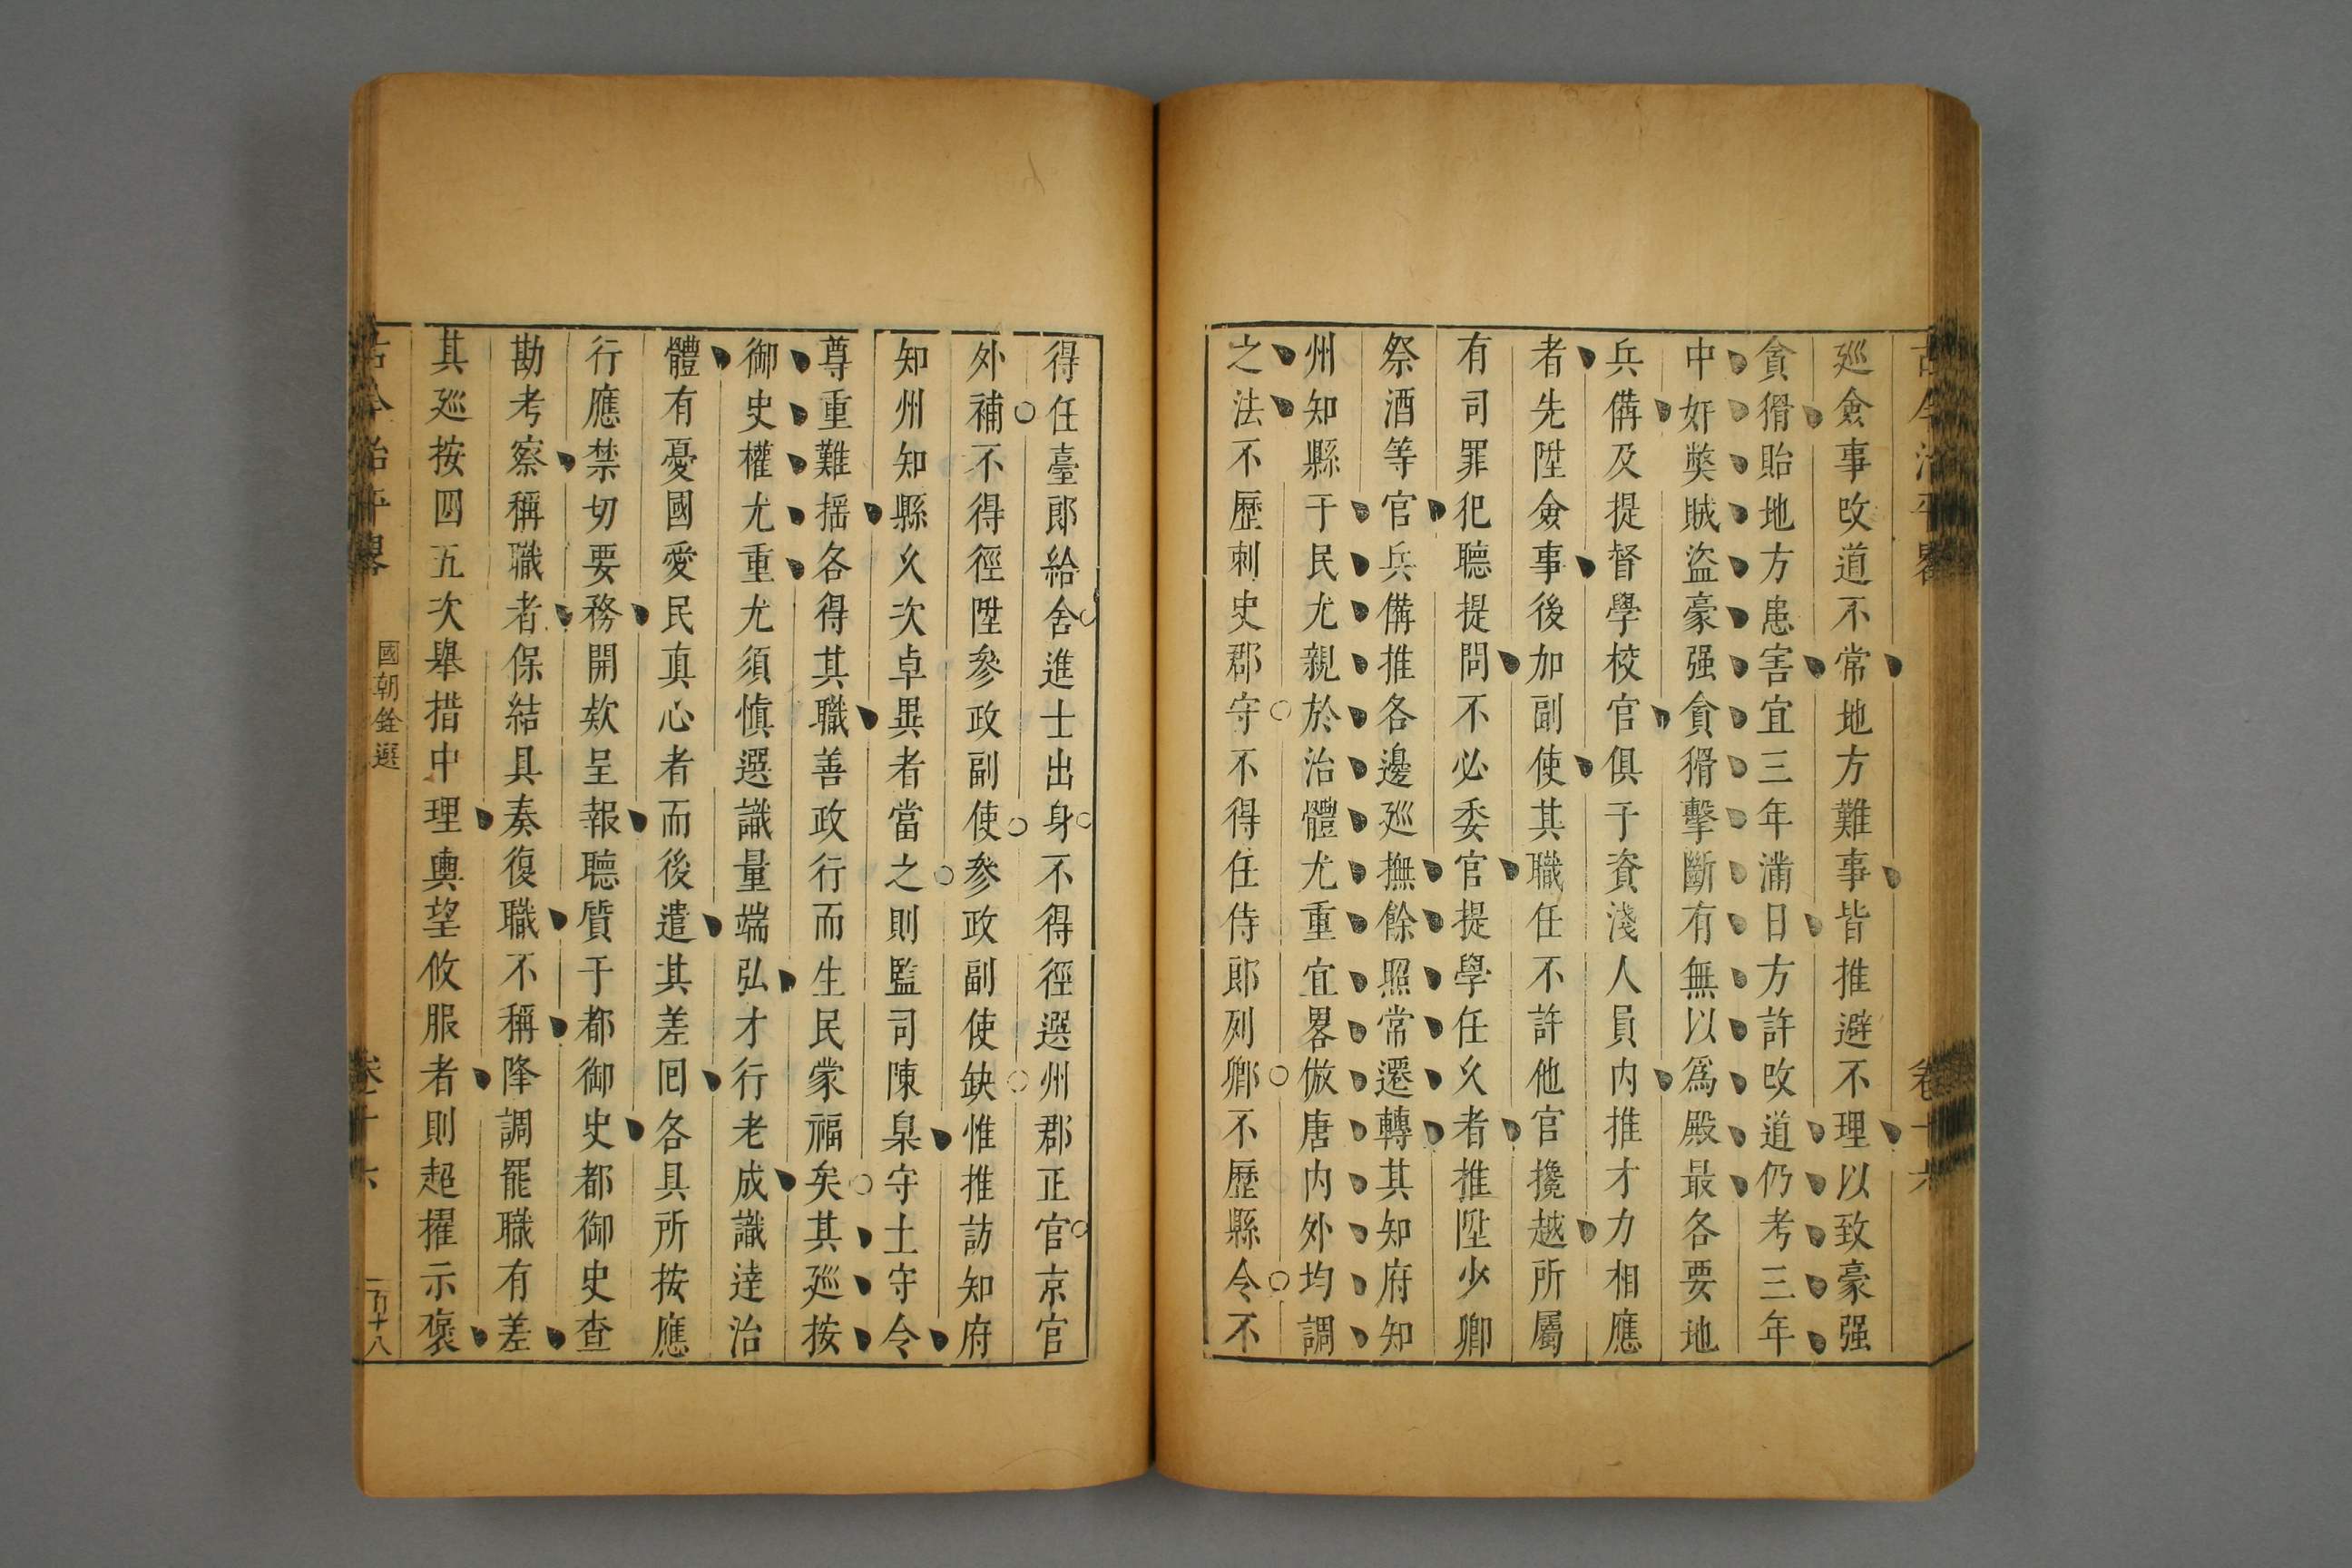 古今治平畧 卷十六
廵僉事改道不常地方難事皆推避不理以致豪强
貪猾貽地方患害宜三年滿日方許改道仍考三年
中奸獘賊盜豪强貪猾擊斷有無以爲殿最各要地
兵備及提督學校官俱于資淺人員内推才力相應
者先陞僉事後加副使其職任不許他官攙越所屬
有司罪犯聽提問不必委官提學任久者推陞少卿
祭酒等官兵備推各邊廵撫餘照常遷轉其知府知
州知縣于民尤親於治體尤重宜畧倣唐内外均調
之法不歷刺史郡守不得任侍郎列卿不歷縣令不
得任臺郎給舍進士出身不得徑選州郡正官京官
外補不得徑陞參政副使參政副使缺惟推訪知府
知州知縣久次卓異者當之則監司陳臬守土守令
尊重難揺各得其職善政行而生民蒙福矣其廵按
御史權尤重尤須慎選識量端弘才行老成識達治
體有憂國愛民真心者而後遣其差囘各具所按應
行應禁切要務開欵呈報聽質于都御史都御史查
勘考察稱職者保結具奏復職不稱降調罷職有差
其廵按四五次舉措中理輿望攸服者則超擢示褒
古今治平畧 國朝銓選 卷十六 一百十八